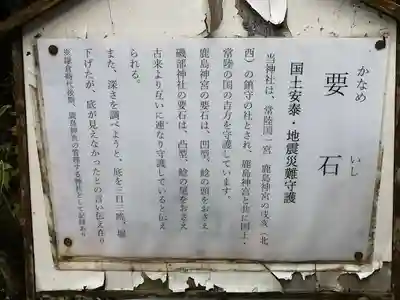 かなめ いし
要石
国土安泰・地震災難守護
当神社は、常陸国一宮 鹿島神宮の戌亥(北
西)の鎮守の社とされ、鹿島神宮と共に国土・
常陸の国の吉方を守護しています。
鹿島神宮の要石は、凹型、鯰の頭をおさえ
磯部神社の要石は、凸型、鯰の尾をおさえ
古来より互いに連なり守護していると伝え
られる。
また、深さを調べようと、底を三日三晩、堀
下げたが、底が見えなかったとの言い伝え在り
鹿島神宮の管轄する神社として記録あり